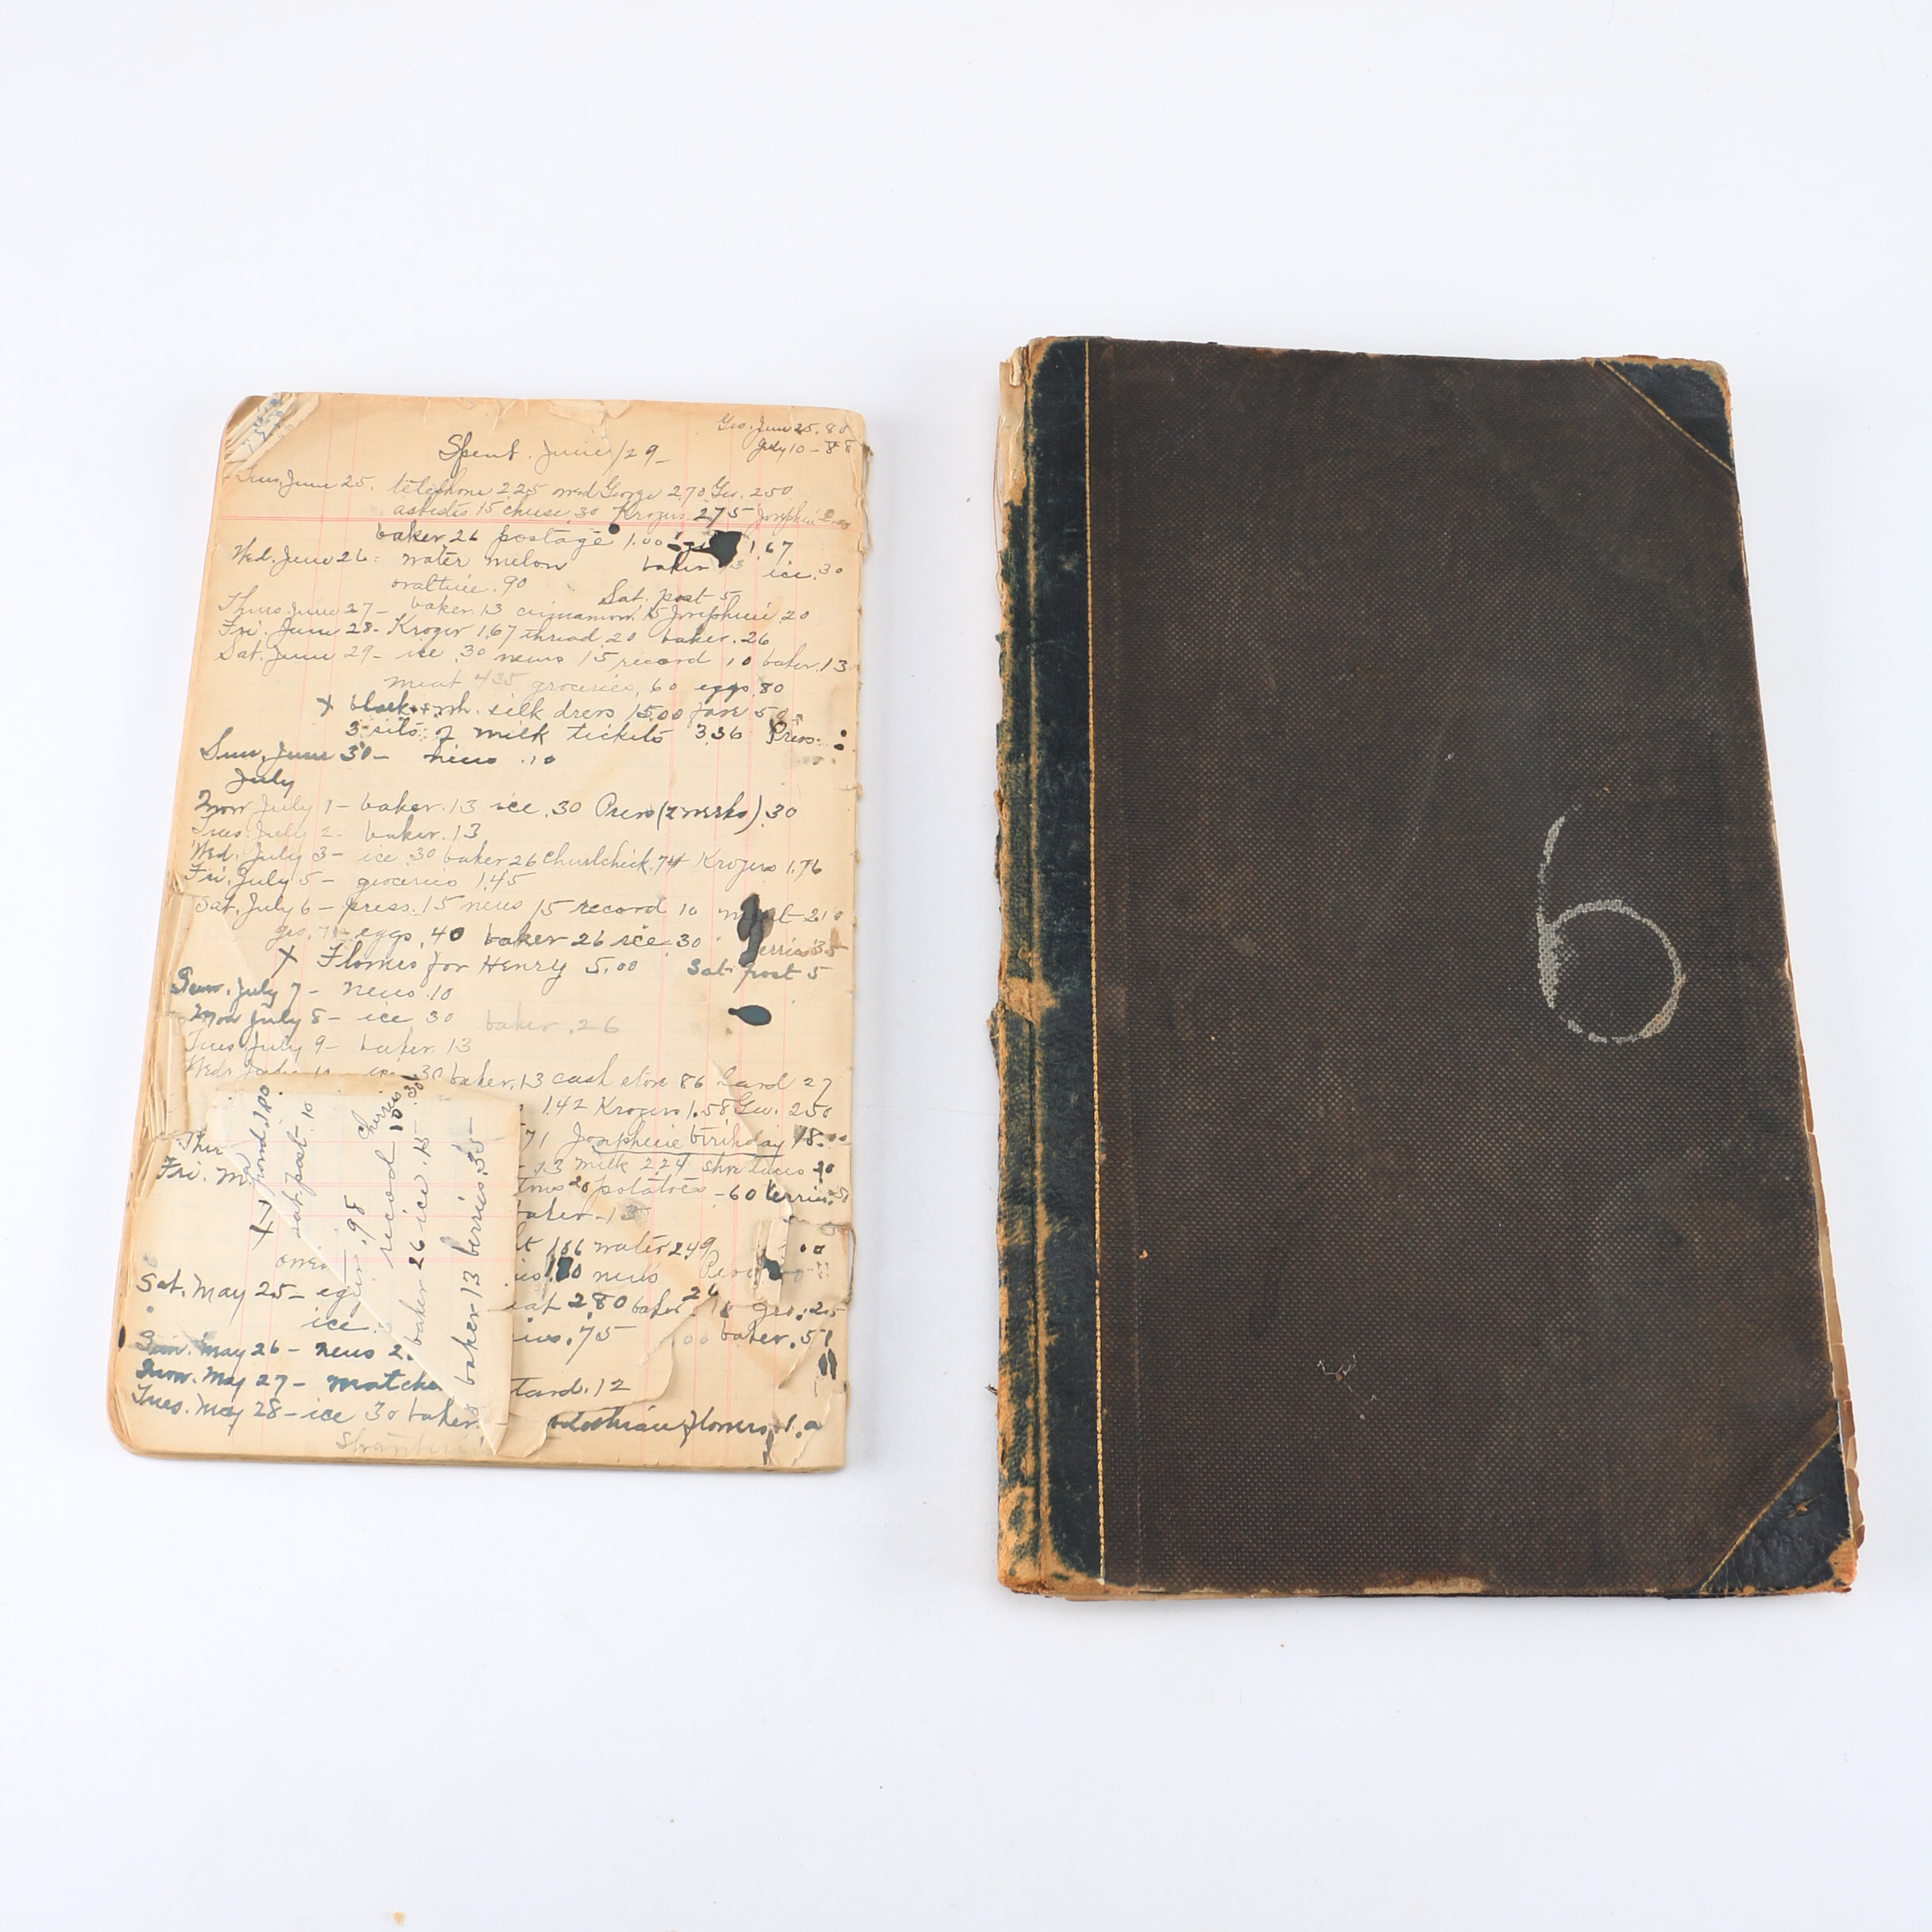 Geo. June 25. 80
July 10 - 88
Spent. June/29-
Tues. June 25. telephone 2.25 med George 2.70 Geo. 2.50
asbestis 15 cheese 30 Krogers 2.75 Josephine
baker 26 postage 1.00 1.67
Wed. June 26- water melon baker 13 ice .30
ovaltine .90 Sat. post 5
Thurs. June 27- baker .13 cinnamon 15 Josephine .20
Fri. June 28- Kroger 1.67 thread .20 baker .26
Sat. June 29- ice .30 news 15 record 10 baker .13
meat 4.35 groceries .60 eggs .80
X black + wh. silk dress 15.00 fare 50
3 sets of milk tickets 3.36 Press
Sun. June 30- news .10
July
Mon July 1- baker .13 ice .30 Press (2 weeks) .30
Tues. July 2- baker .13
Wed. July 3- ice .30 baker 26 .74 Krogers 1.76
Fri. July 5- groceries 1.45
Sat. July 6- press .15 news 15 record 10 meat 210
gro. 71 eggs .40 baker 26 ice .30 35
X Flowers for Henry 5.00 Sat. post 5
Sun. July 7- news .10
Mon July 8- ice 30 baker .26
Tues. July 9- baker .13
30 baker .13 cash store 86 Lard 27
1.42 Krogers 1.58 Geo. 2.50
71 Josephine birthday 18.00
Thu
.13 milk 2.24 shoe laces 20
Fri. Ma
20 potatoes -60 berries
baker -13
186 water 2.49
news
Sat. May 25- 2.80 baker 26 gro. 25
ice .75 baker .51
Sun. May 26- news
Mon. May 27- matche tard .12
Tues. May 28- ice 30 baker flowers 1.
sat. post. 10
.98
cherries 30
record 10
baker 26 ice .15
baker 13 berries .35
6